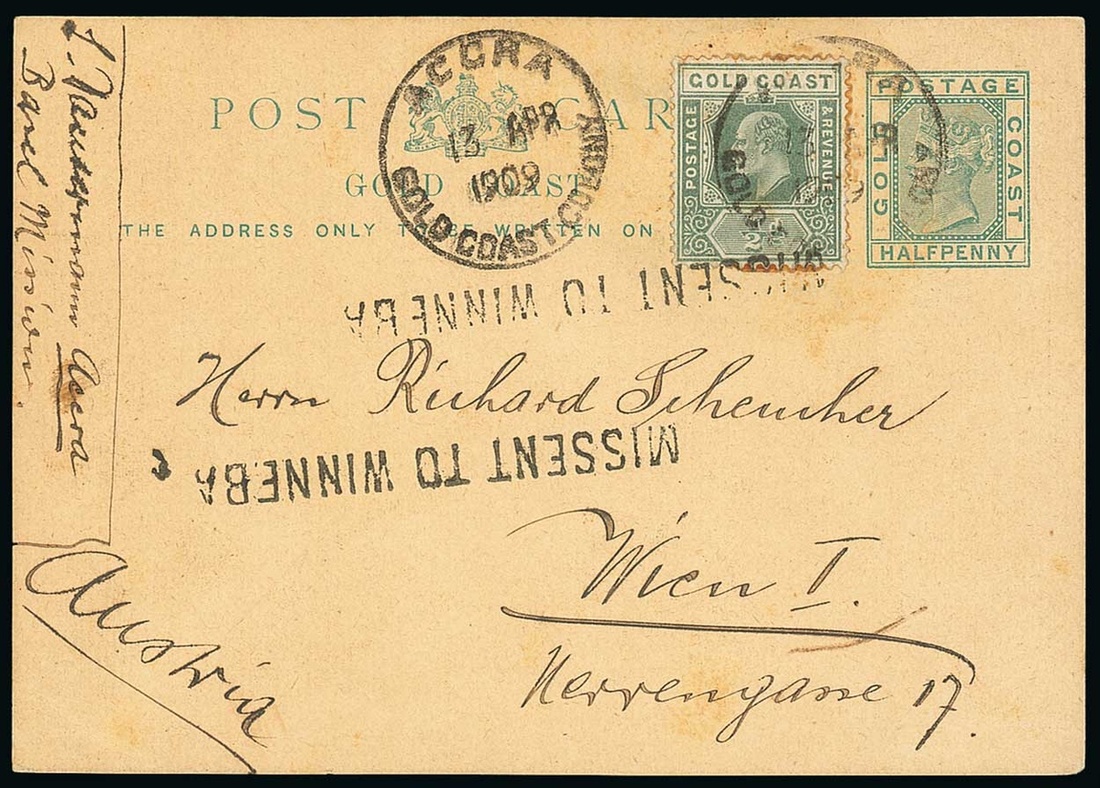 POST CARD
GOLD COAST
THE ADDRESS ONLY TO BE WRITTEN ON
ACCRA
13 APR
1909
GOLD COAST COLONY
GOLD COAST
POSTAGE & REVENUE
POSTAGE
GOLD COAST
HALFPENNY
MISSENT TO WINNEBA
Herrn Richard Scheucher
MISSENT TO WINNEBA
Wien I.
Herrengasse 17.
Austria
Accra
Basel Mission.